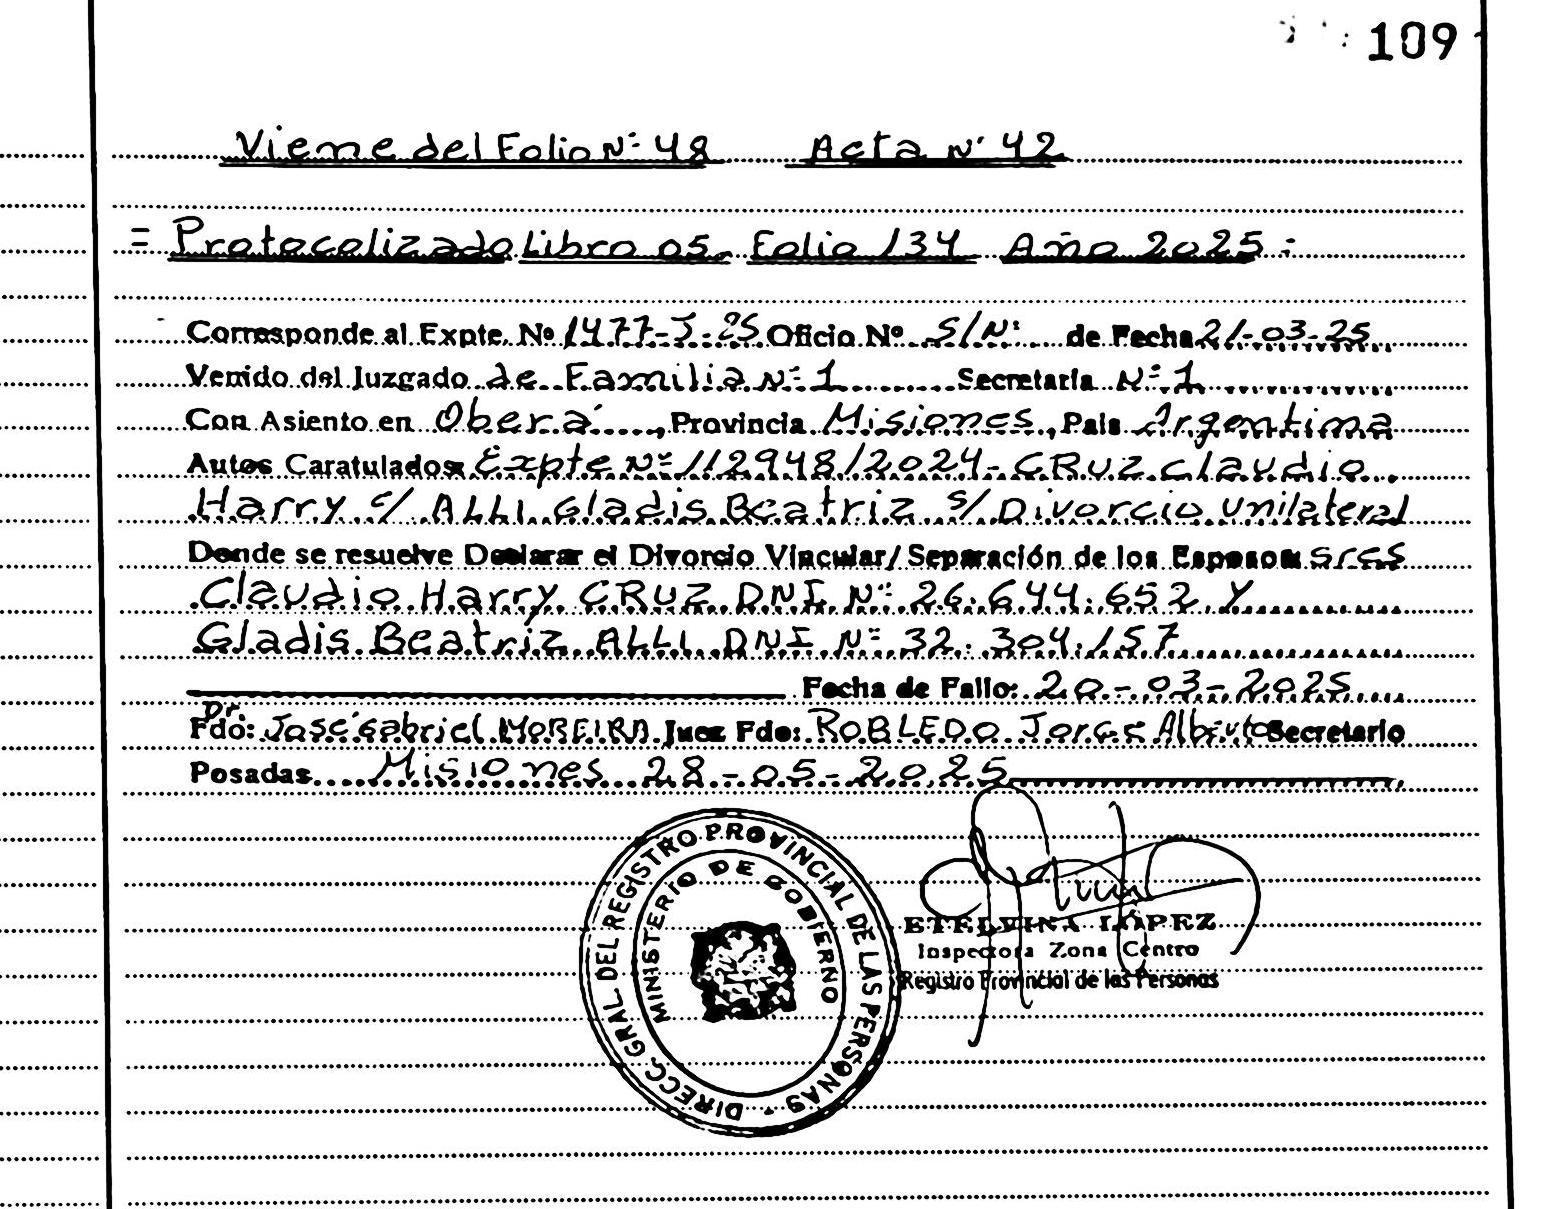 109
Viene del Folio Nº 48 Acta Nº 42
= Protocolizado Libro 05. Folio 134 Año 2025:
Corresponde al Expte. Nº 1477-J-25 Oficio Nº S/Nº de Fecha 21-03-25
Venido del Juzgado de Familia Nº 1 Secretaría Nº 1
Con Asiento en Oberá, Provincia Misiones, País Argentina
Autos Caratulados: Expte Nº 112948/2024- CRUZ Claudio
Harry c/ ALLI Gladis Beatriz s/ Divorcio Unilateral
Donde se resuelve Declarar el Divorcio Vincular/Separación de los Esposos: sres
Claudio Harry CRUZ DNI Nº 26.644.652 Y
Gladis Beatriz ALLI DNI Nº 32.304.157
Fecha de Fallo: 20-03-2025
Fdo: Dr. José Gabriel MOREIRA Juez Fdo: ROBLEDO Jorge Alberto Secretario
Posadas Misiones 28-05-2025
DIRECC. GRAL. DEL REGISTRO PROVINCIAL DE LAS PERSONAS
MINISTERIO DE GOBIERNO
ETELVINA LOPEZ
Inspectora Zona Centro
Registro Provincial de las Personas